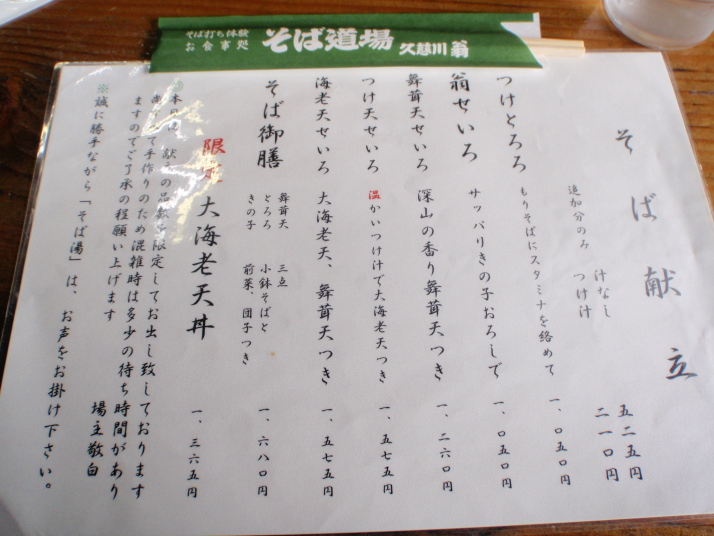 そば打ち体験
お食事処
そば道場
久慈川 翁
そば献立
追加分のみ
汁なし 五二五円
つけ汁 二一〇円
つけとろろ もりそばにスタミナを絡めて 一、〇五〇円
翁せいろ サッパリきの子おろしで 一、〇五〇円
舞茸天せいろ 深山の香り舞茸天つき 一、二六〇円
つけ天せいろ 温かいつけ汁で大海老天つき 一、五七五円
海老天せいろ 大海老天、舞茸天つき 一、五七五円
そば御膳 一、六八〇円
舞茸天 三点
とろろ 小鉢そばと
きの子 前菜、団子つき
限定 大海老天丼 一、三六五円
本日は、献立の品数を限定してお出し致しております
て手作りのため混雑時は多少の待ち時間があり
ますのでご了承の程願い上げます 場主敬白
※誠に勝手ながら「そば湯」は、お声をお掛け下さい。